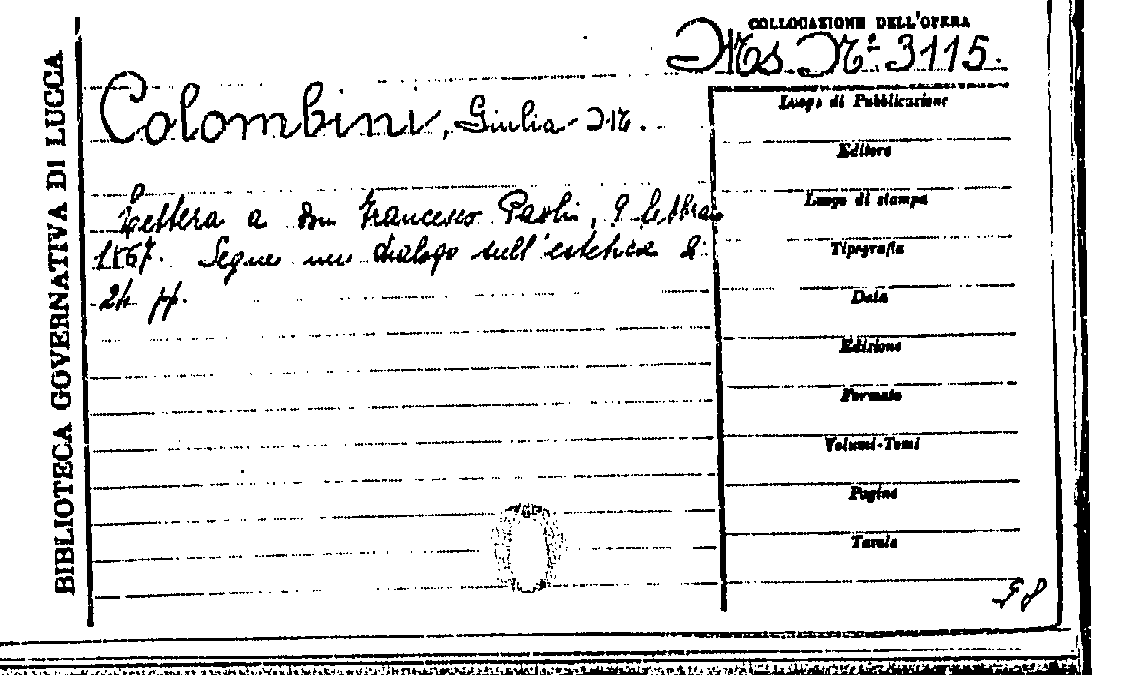 BIBLIOTECA GOVERNATIVA DI LUCCA
COLLOCAZIONE DELL'OPERA
Ms. N.º 3115.
Colombini, Giulia M.
Lettera a don Francesco Paoli, 9 febbraio
1867. Segue un dialogo sull'estetica di
24 pp.
Luogo di Pubblicazione
Editore
Luogo di stampa
Tipografia
Data
Edizione
Formato
Volumi-Tomi
Pagine
Tavole